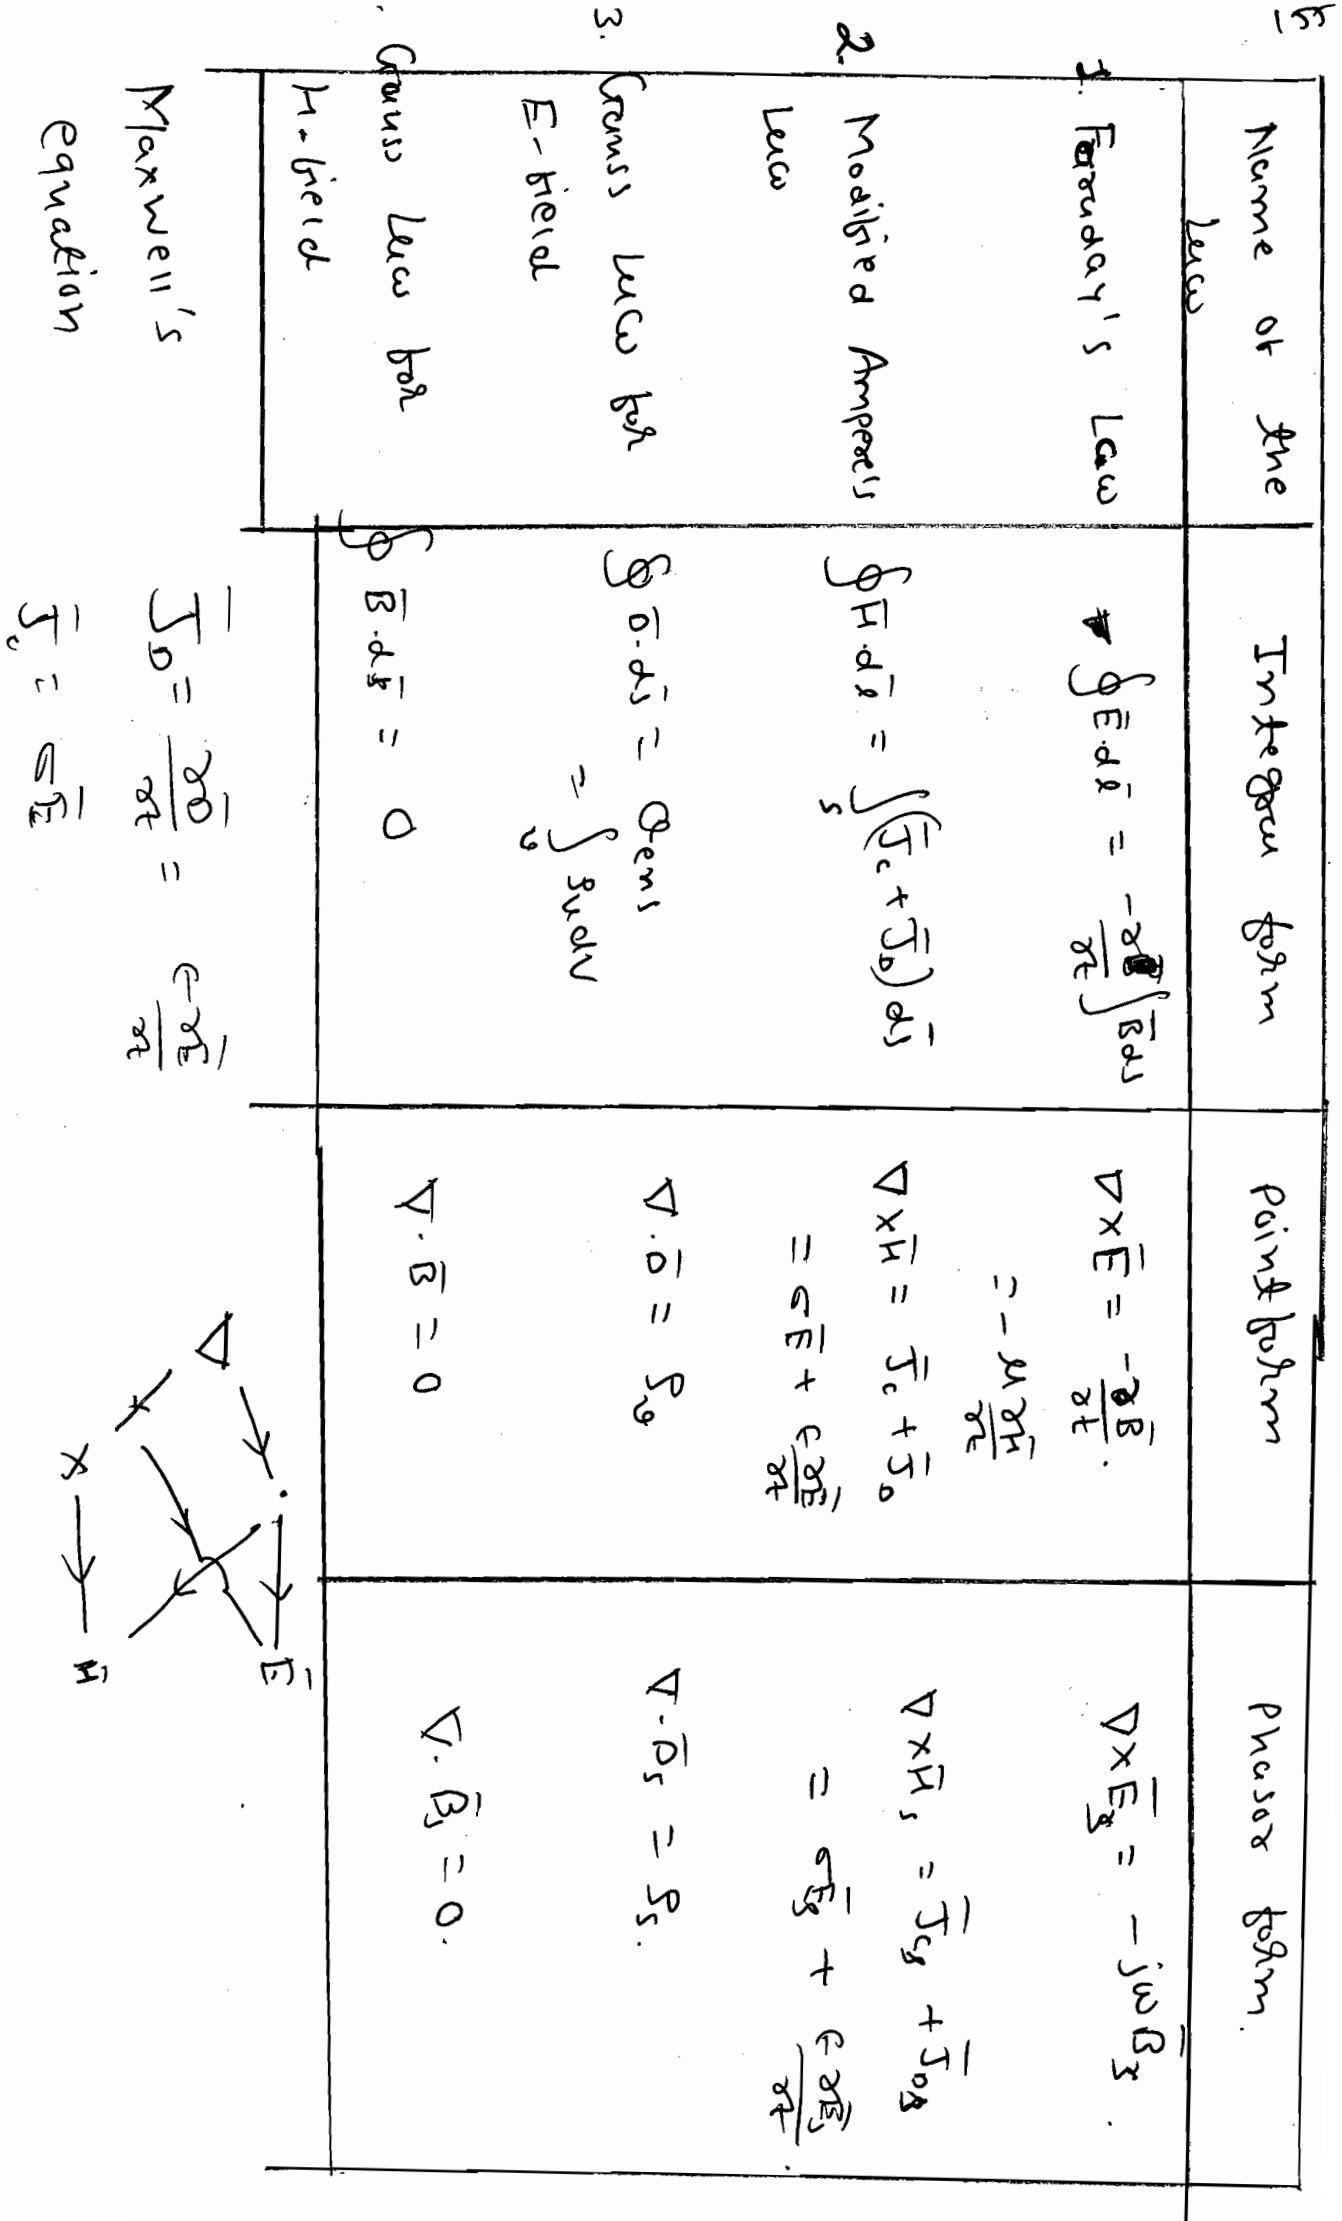 Name of the Law
Integral form
Point form
Phasor form.
1. Faraday's Law
∮ E̅.dl̅ = -∂/∂t ∫ B̅ ds
∇×E̅ = -∂B̅/∂t.
= -μ ∂H̅/∂t
∇×E̅s = -jω B̅s.
2. Modified Ampere's Law
∮ H̅.dl̅ = ∫s (J̅c + J̅D) ds̅
∇×H̅ = J̅c + J̅D
= σE̅ + ε ∂E̅/∂t
∇×H̅s = J̅cs + J̅Ds
= σE̅s + ε ∂E̅s/∂t.
3. Gauss Law for E-field
∮ D̅.ds̅ = Qens
= ∫v ρv dv
∇.D̅ = ρv
∇.D̅s = ρs.
. Gauss Law for H-field
∮ B̅.ds̅ = 0
∇.B̅ = 0
∇.B̅s = 0.
Maxwell's equation
J̅D = ∂D̅/∂t = ε ∂E̅/∂t
J̅c = σE̅
∇
.
E̅
×
H̅